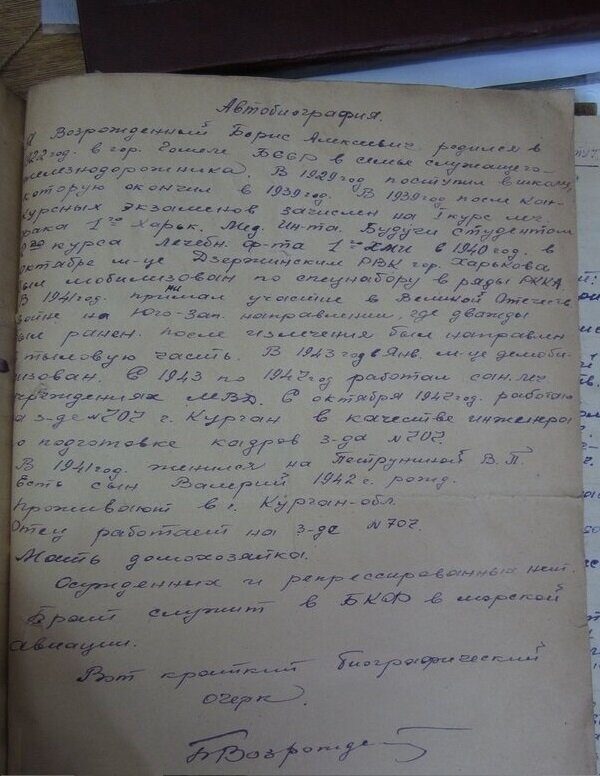 Автобиография.
Я Возрожденный Борис Алексеевич родился в
1922 год. в гор. Гомеле БССР в семье служащего-
железнодорожника. В 1929 год поступил в школу,
которую окончил в 1939 год. В 1939 год после кон-
курсных экзаменов зачислен на I курс леч.
фака 1го Харьк. Мед. Ин-та. Будучи студентом
2го курса лечебн. ф-та 1го ХМИ в 1940 год. в
октябре м-це Дзержинским РВК гор. Харькова
был мобилизован по спецнабору в ряды РККА
В 1941 год. принимал участие в Великой Отечеств
войне на Юго-Зап. направлении, где дважды
был ранен. после излечения был направлен
в тыловую часть. В 1943 год в Янв. м-це демоби-
лизован. С 1943 по 1947 год работал сан. леч
учреждениях МВД. С октября 1947 год. работаю
на з-де №707 г. Курган в качестве инженера
по подготовке кадров з-да №707.
В 1941 год. женился на Петруниной В. П.
Есть сын Валерий 1942 г. рожд.
Проживают в г. Курган-обл.
Отец работает на з-де №707.
Мать домохозяйка.
Осужденных и репрессированных нет.
Брат служит в БКФ в морской
авиации.
Вот краткий биографический
очерк.
БВозрожде